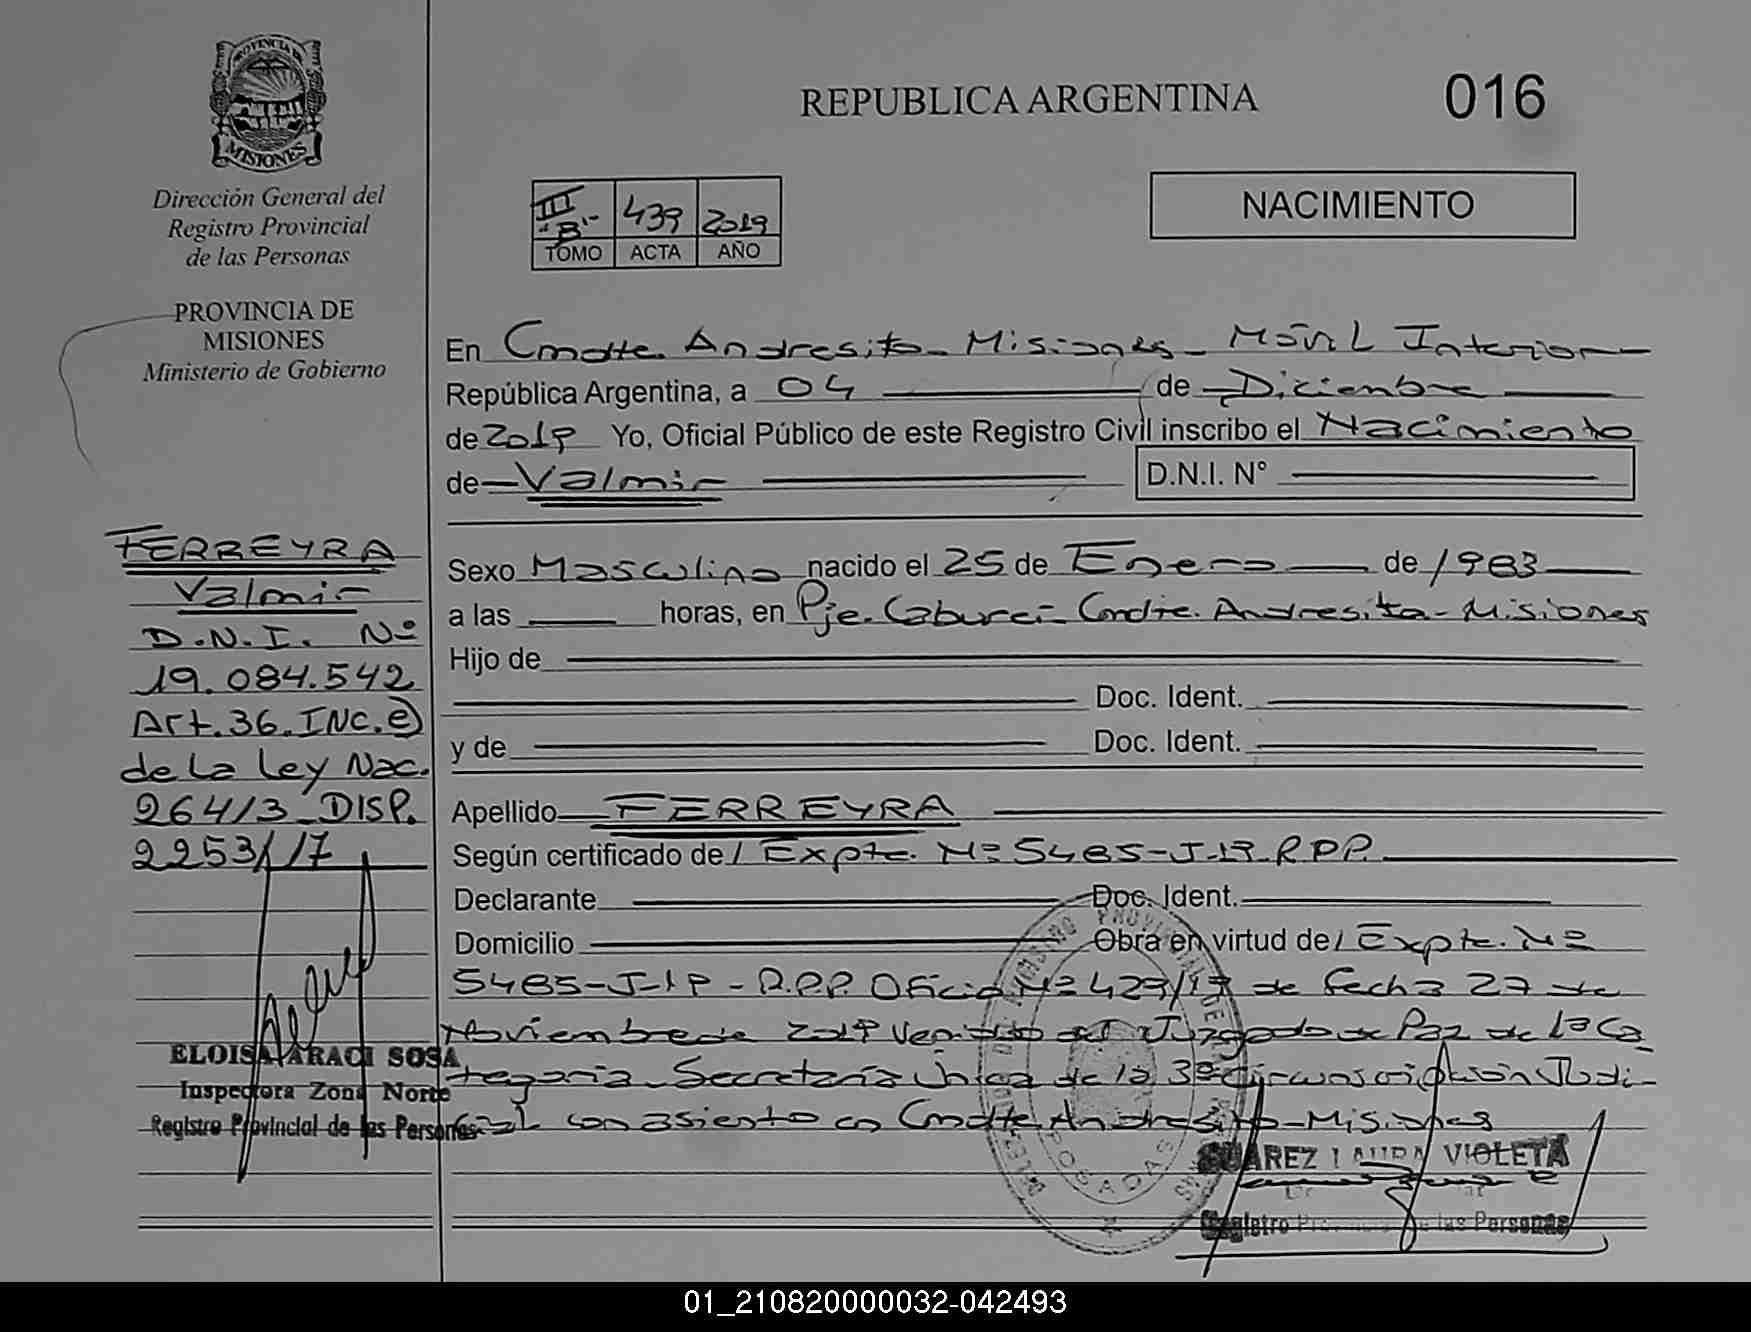 PROVINCIA DE
MISIONES
Dirección General del
Registro Provincial
de las Personas
PROVINCIA DE
MISIONES
Ministerio de Gobierno
FERREYRA
Valmir
D.N.I. Nº
19.084.542
Art.36.INC.e)
de La Ley Nac.
264/3_DISP.
2253//17
ELOISA ARACI SOSA
Inspectora Zona Norte
Registro Provincial de las Personas
REPUBLICA ARGENTINA
016
III "B" 439 2019
TOMO ACTA AÑO
NACIMIENTO
En Cmdte. Andresito - Misiones - Móvil Interior
República Argentina, a 04 de Diciembre
de 2019 Yo, Oficial Público de este Registro Civil inscribo el Nacimiento
de Valmir D.N.I. N°
Sexo Masculino nacido el 25 de Enero de 1983
a las horas, en Pje. Caburei - Cmdte. Andresito - Misiones
Hijo de
Doc. Ident.
y de Doc. Ident.
Apellido FERREYRA
Según certificado de / Expte. Nº 5485-J-19-R.P.P.
Declarante Doc. Ident.
Domicilio Obra en virtud de / Expte. Nº
5485-J-19 - R.P.P. Oficio Nº 429/19 de fecha 27 de
Noviembre de 2019 Venido del Juzgado de Paz de 1ª Ca
tegoria - Secretaría Única de la 3ª Circunscripción Judi-
cial con asiento en Cmdte Andresito - Misiones
SUAREZ LAURA VIOLETA
Registro Provincial de las Personas
POSADAS
01_210820000032-042493